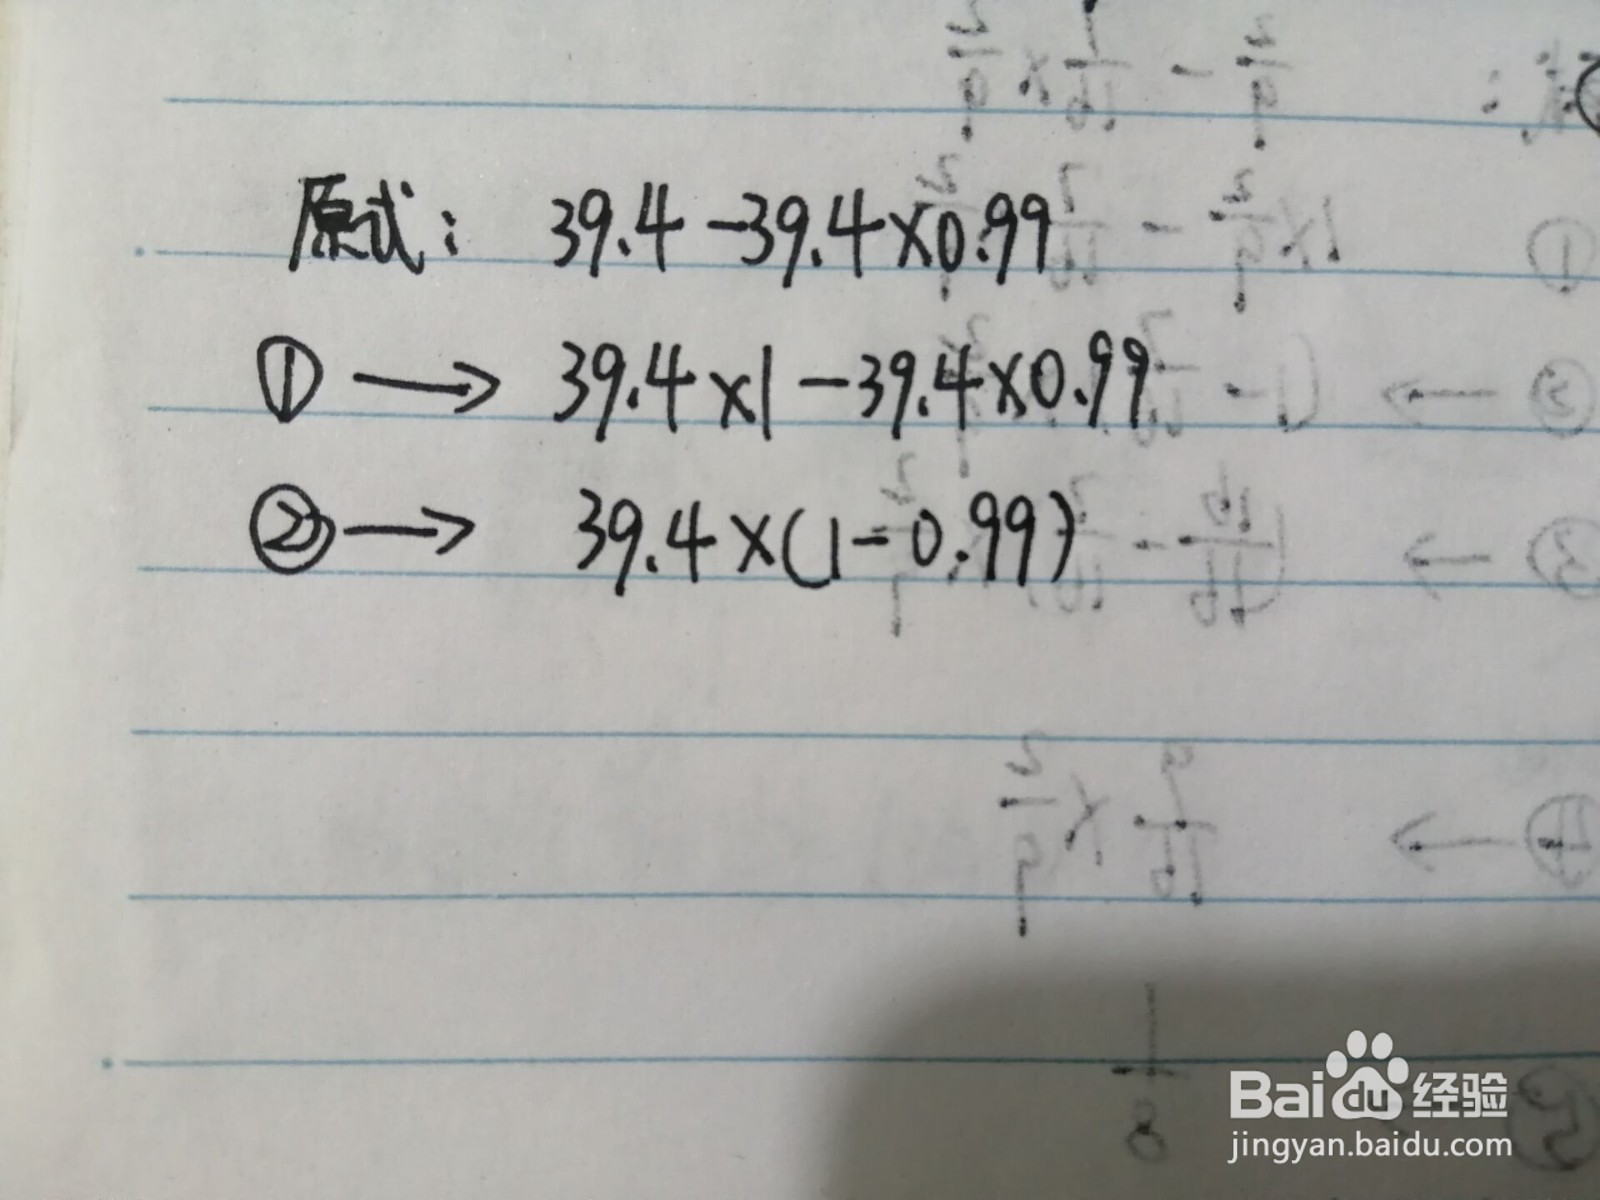 原式: 39.4-39.4×0.99
① → 39.4×1-39.4×0.99
② → 39.4×(1-0.99)
Baidu 经验
jingyan.baidu.com